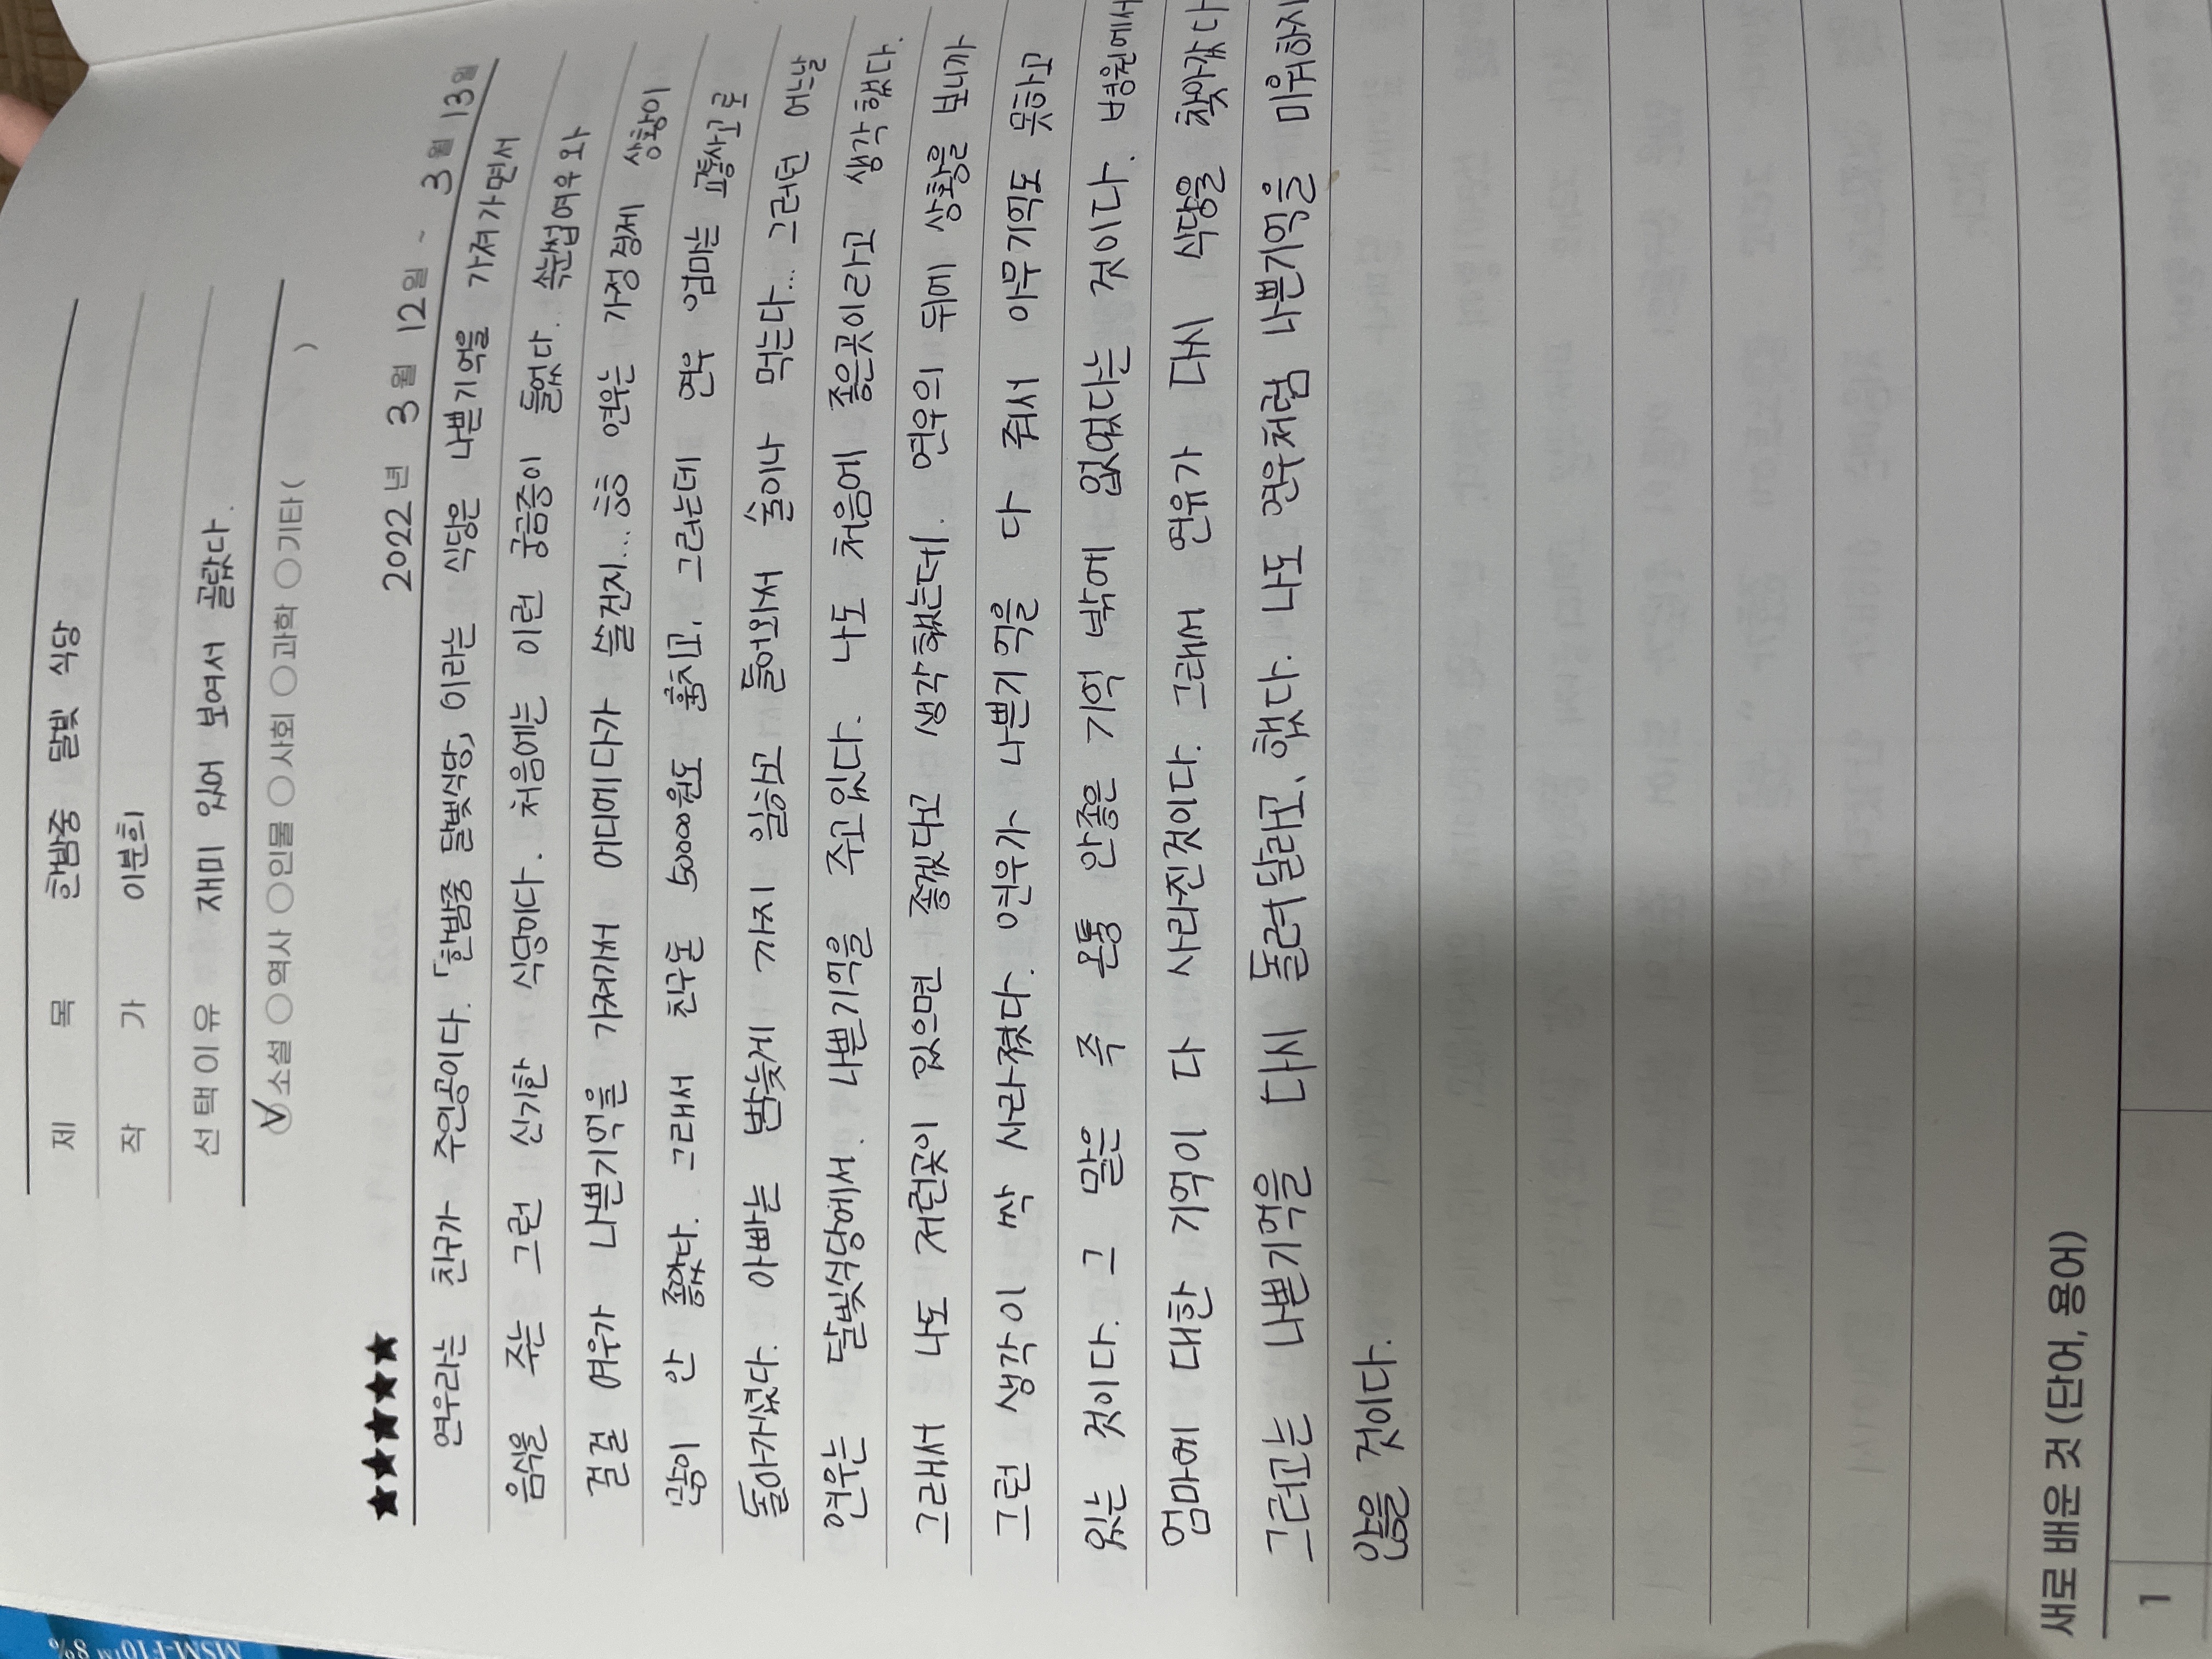 MSM-F10™ 8%
제 목 한밤중 달빛 식당
작 가 이분희
선택이유 재미 있어 보여서 골랐다.
소설 역사 인물 사회 과학 기타 ( )
★★★★★
2022년 3월 12일 ~ 3월 13일
연우라는 친구가 주인공이다. 「한밤중 달빛식당」 이라는 식당은 나쁜기억을 가져가면서
음식을 주는 그런 신기한 식당이다. 처음에는 이런 궁금증이 들었다. 속눈썹여우와
걸걸 여우가 나쁜기억을 가져가서 어디에다가 쓸건지... 흠흠 연우는 가정경제 상황이
많이 안 좋았다. 그래서 친구돈 50000원도 훔치고, 그러는데 연우 엄마는 교통사고로
돌아가셨다. 아빠는 밤늦게 까지 일하고 들어와서 술이나 먹는다... 그러던 어느날
연우는 달빛식당에서. 나쁜기억을 주고있다. 나도 처음에 좋은곳이라고 생각했다.
그래서 나도 저런곳이 있으면 좋겠다고 생각했는데. 연우의 뒤에 상황을 보니까
그런 생각이 싹 사라졌다. 연우가 나쁜기억을 다 줘서 아무기억도 못하고
있는 것이다. 그 말은 즉 온통 안좋은 기억 밖에 없었다는 것이다. 병원에서
엄마에 대한 기억이 다 사라진것이다. 그래서 연유가 다시 식당을 찾아갔다
그러고는 나쁜기억을 다시 돌려달라고, 했다. 나도 연우처럼 나쁜기억을 미워하지
않을 것이다.
새로 배운 것 (단어, 용어)
1